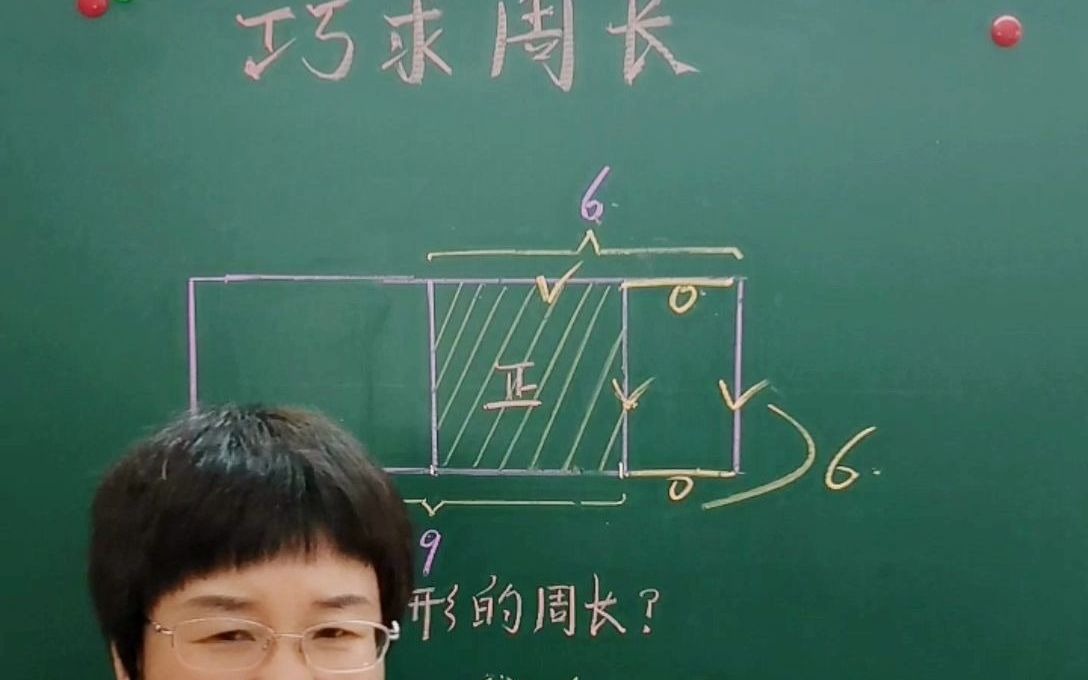 巧求周长
6
正
0
0
6
9
形的周长?